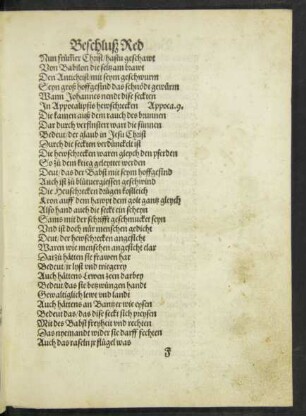 Beschluß Red
Nun frümer Christ hastu geschawt
Von Babilon die seinam brawt
Den Antichrist mit seym geschwurm
Seyn groß hoffgesind das schnödt gewürm
Wann Johannes nendt dise seckten
In Appocalipsis hewschrecken Appoca.9.
Die kamen auß dem rauch des brunnen
Dar durch verfinstert wart die sunnen
Bedeut der glaub in Jesu Christ
Durch die secktenn verdunckelt ist
Die hewschrecken waren gleych den pferden
So zů dem krieg geleytet werden
Deut das der Babst mit seym hoffgesind
Auch ist zů blůtuergiessen geschwind
Die Heuschrecken drůgen kostleich
Kron auff dem hawpt dem golt gantz gleych
Also hand auch die seckt ein scheyn
Sams mit der schrifft geschmucket seyn
Vnd ist doch nůr menschen gedicht
Deut der hewschrecken angesicht
Waren wie menschen angesicht clar
Darzů hätten sie frawen har
Bedeut ir lyst vnd triegerey
Auch hättens Lewen zeen darbey
Bedeut das sie bezwungen handt
Gewaltiglich lewt vnd landt
Auch hättens an Pantzer wie eysen
Bedeut das/ das dise seckt sich preysen
Mit des Babst freyheit vnd rechten
Das nyemandt wider sie darff fechten
Auch das raseln jr flügel was
F